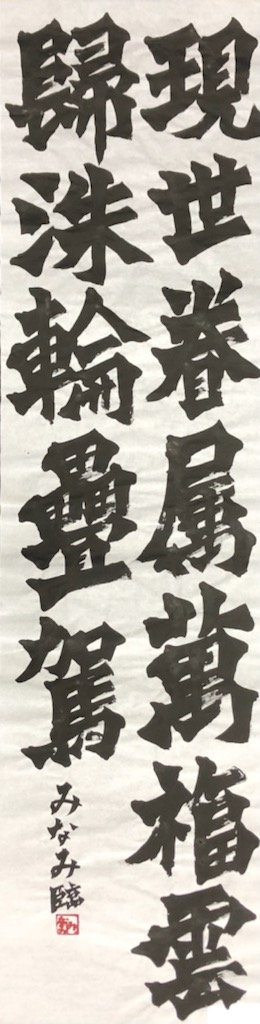 現世眷属萬福雲
歸洙輪疊駕
みなみ臨